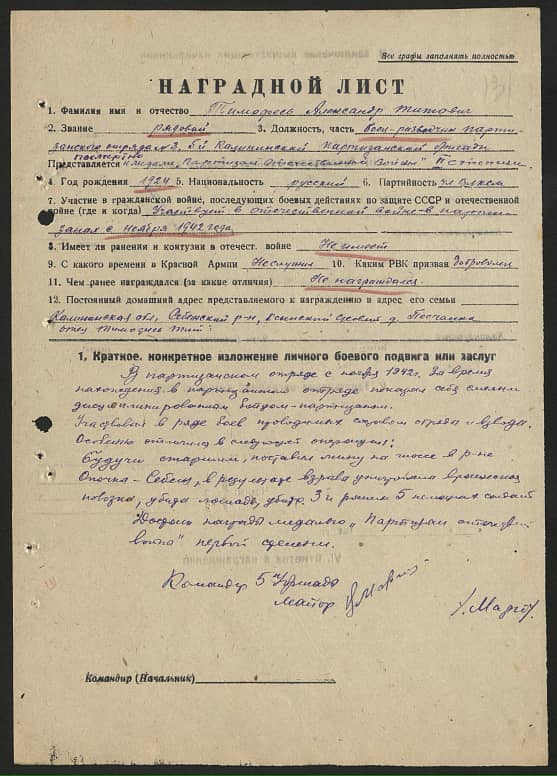 Все графы заполнять полностью
НАГРАДНОЙ ЛИСТ
1. Фамилия имя и отчество Тимофеев Александр Титович
2. Звание рядовой 3. Должность, часть боец-разведчик парти-
занского отряда № 3, 5й Калининской партизанской бригады
посмертно
Представляется к медали "Партизан Отечественной Войны" II степени
4. Год рождения 1924 5. Национальность русский 6. Партийность чл. ВЛКСМ
7. Участие в гражданской войне, последующих боевых действиях по защите СССР и отечественной
войне (где и когда) Участвует в отечественной войне в партизанах с ноября 1942 года
8. Имеет ли ранения и контузии в отечест. войне Не имеет
9. С какого времени в Красной Армии Не служил 10. Каким РВК призван доброволец
11. Чем ранее награждался (за какие отличия) Не награждался
12. Постоянный домашний адрес представляемого к награждению и адрес его семьи
Калининская обл, Себежский р-н, сельский совет д. Песчанка
отец Тимофеев Тит
1. Краткое, конкретное изложение личного боевого подвига или заслуг
В партизанском отряде с ноября 1942г. За время
нахождения в партизанском отряде показал себя смелым
дисциплинированным бойцом-партизаном.
Участвовал в ряде боев проводимых составом отряда и взвода.
Особенно отличился в следующей операции:
Будучи старшим, поставил мину на шоссе в р-не
Опочка-Себеж, в результате взрыва уничтожена вражеская
повозка, убита лошадь, убито 3 и ранен 5 немецких солдат
Достоин награды медалью "Партизан отечествен.
войны" первой степени.
Командир 5 Бригады
майор
Командир (Начальник)